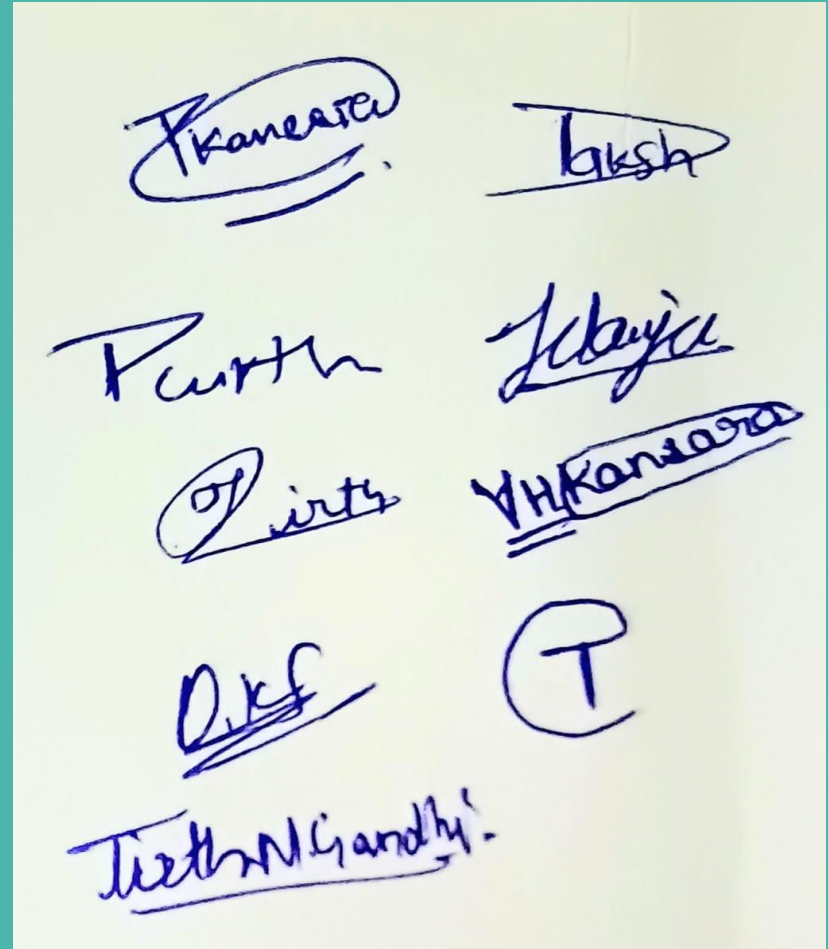 Pkansara
Daksh
Parth
Tirth
VHKansara
D.K
T
Tirth N Gandhi.